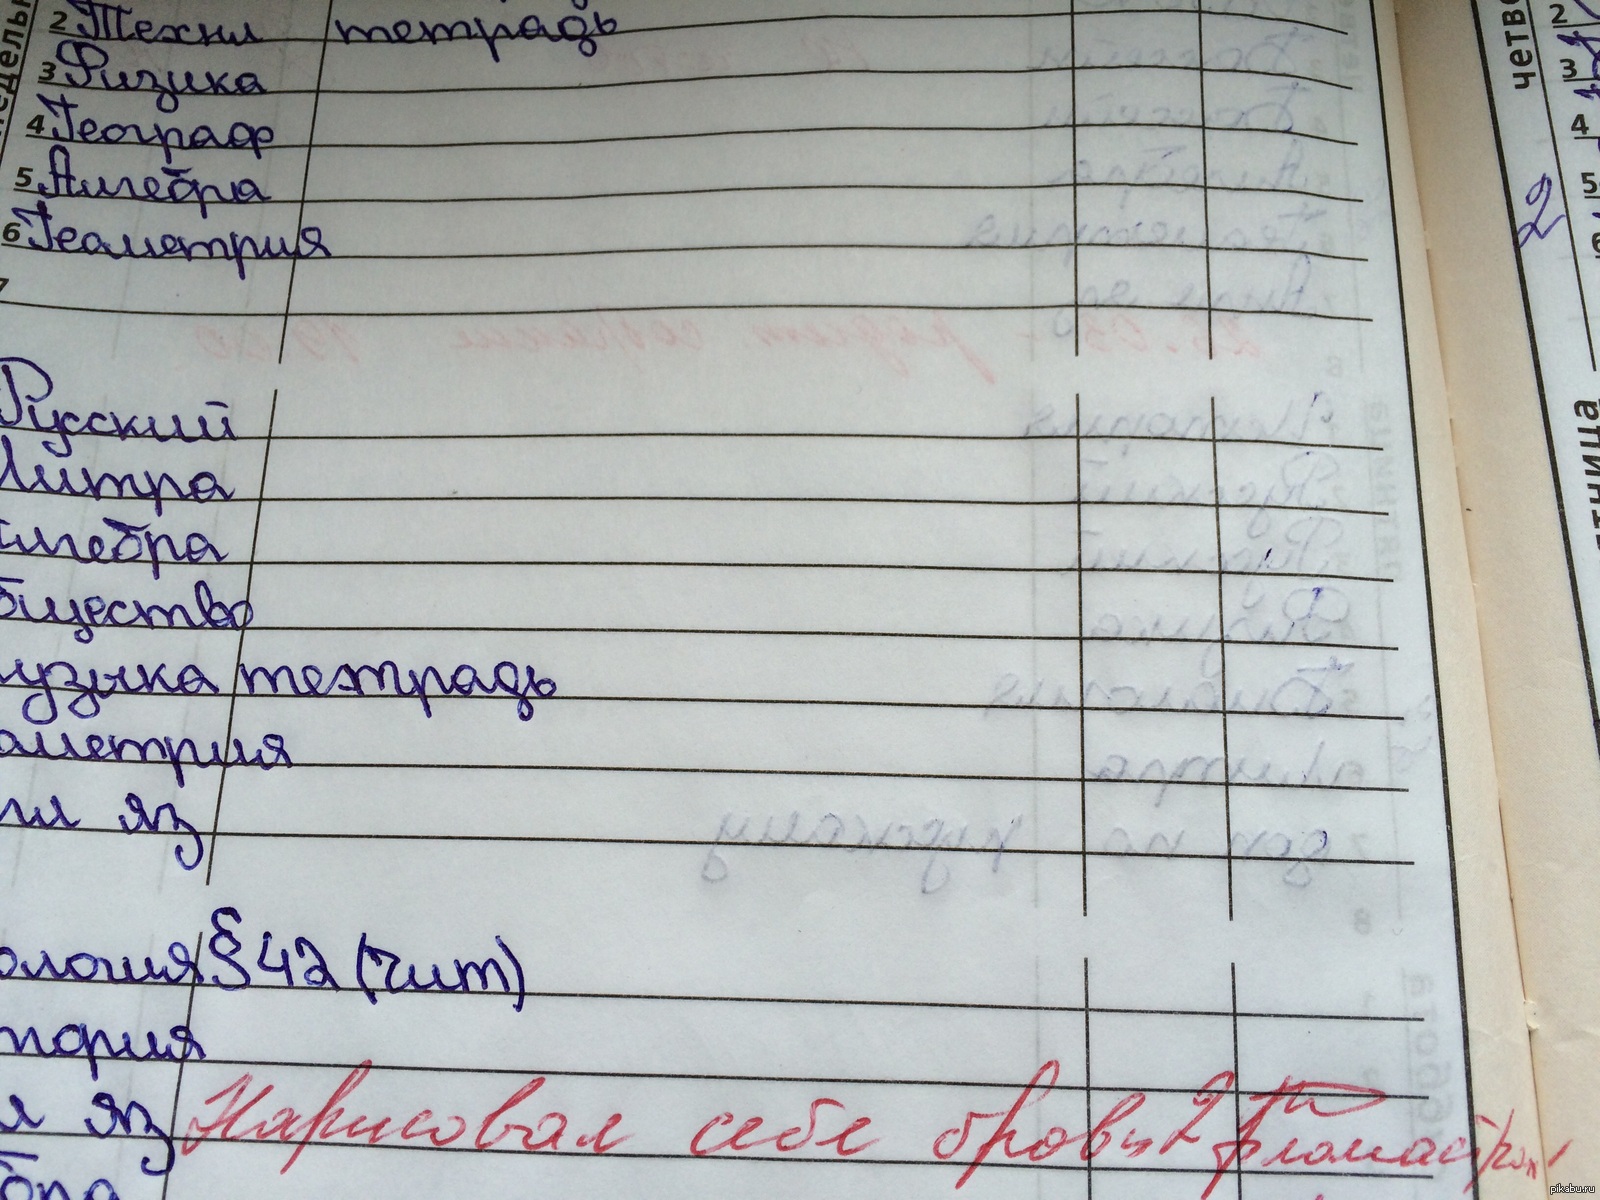 недельн
2 Техна тетрадь
3 Физика
4 Географ
5 Алгебра
6 Геометрия
7
Русский
Литра
лгебра
бщество
узыка тетрадь
ометрия
яз
ология §42 (чит)
тория
яз Нарисовал себе брови 2 фломастером!
бра
четве
2
3
4
5
6
2
тница
pikabu.ru